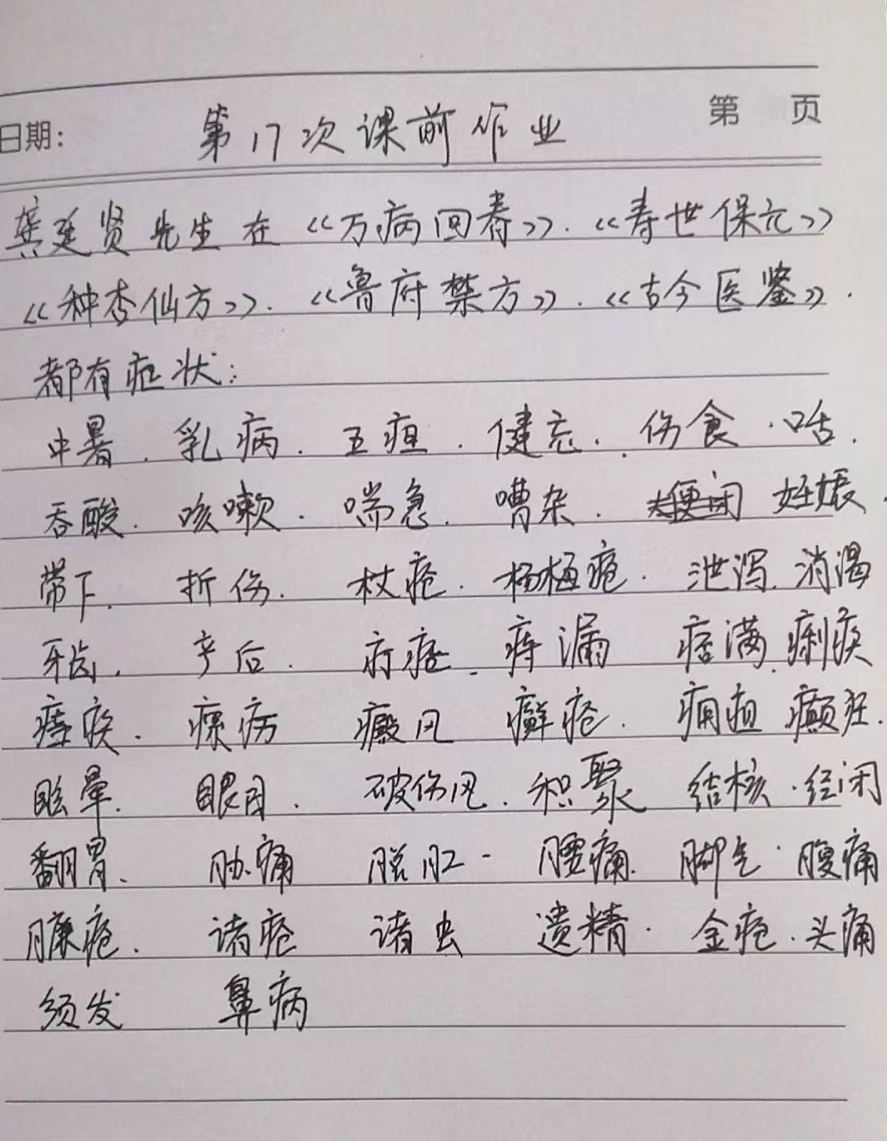 日期: 第17次课前作业 第 页
龚廷贤先生在《万病回春》.《寿世保元》
《种杏仙方》.《鲁府禁方》.《古今医鉴》.
都有症状:
中暑.乳病.五疸.健忘.伤食.
吞酸.咳嗽.喘急.嘈杂. 妊娠.
带下. 折伤. 杖疮. 杨梅疮. 泄泻. 消渴
牙齿. 产后. 痔漏 痞满. 痢疾
癜风 癣疮. 痈疽 癫狂.
眩晕. 眼目. 破伤风. 积聚 结核.经闭
翻胃. 胁痛 脱肛. 腰痛. 脚气.腹痛
臁疮. 诸疮 诸虫 遗精. 金疮.头痛
须发 鼻病